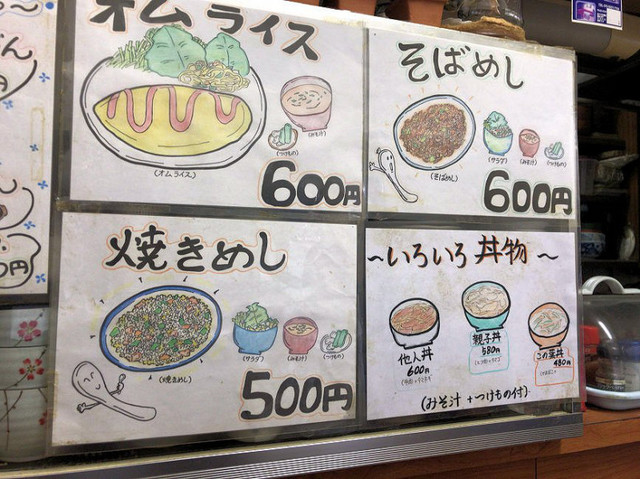 オムライス
(オムライス)
(みそ汁)
(つけもの)
600円
そばめし
(そばめし)
(サラダ)
(みそ汁)
(つけもの)
600円
焼きめし
(焼きめし)
(サラダ)
(みそ汁)
(つけもの)
500円
~いろいろ丼物~
他人丼
600円
親子丼
580円
この葉丼
480円
(みそ汁+つけもの付)
円
円